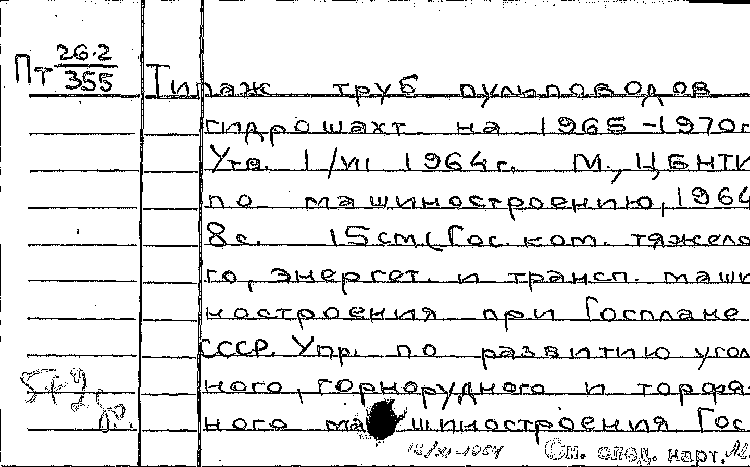 Пт 26.2/355
Типаж труб пульповодов
гидрошахт на 1965-1970г
Утв. 1/VII 1964г. М., ЦБНТИ
по машиностроению, 1964
8с. 15см (Гос. ком. тяжело-
го, энергет. и трансп. маши
ностроения при Госплане
СССР. Упр. по развитию угол
ного, горнорудного и торфя-
ного машиностроения Гос
См. след. карт.